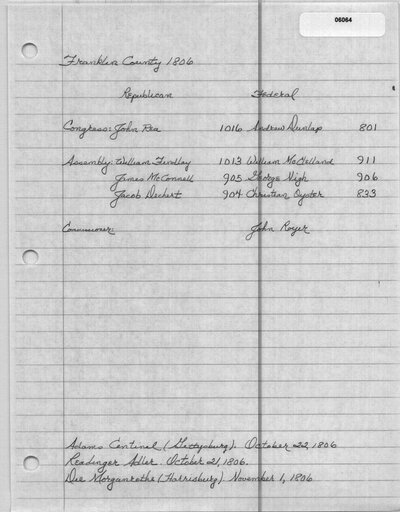 06064
Franklin County 1806
Republican Federal
Congress: John Rea 1016 Andrew Dunlap 801
Assembly: William Findlay 1013 William McClelland 911
James McConnell 905 George Nigh 906
Jacob Dechert 904 Christian Oyster 833
Commissioner: John Royer
Adams Centinel (Gettysburg). October 22, 1806
Readinger Adler. October 21, 1806.
Die Morgenrothe (Harrisburg). November 1, 1806